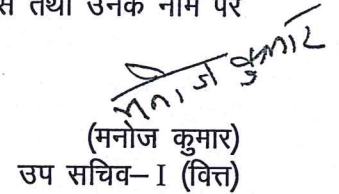 तथा उनके नाम पर
मनोज कुमार
(मनोज कुमार)
उप सचिव– I (वित्त)